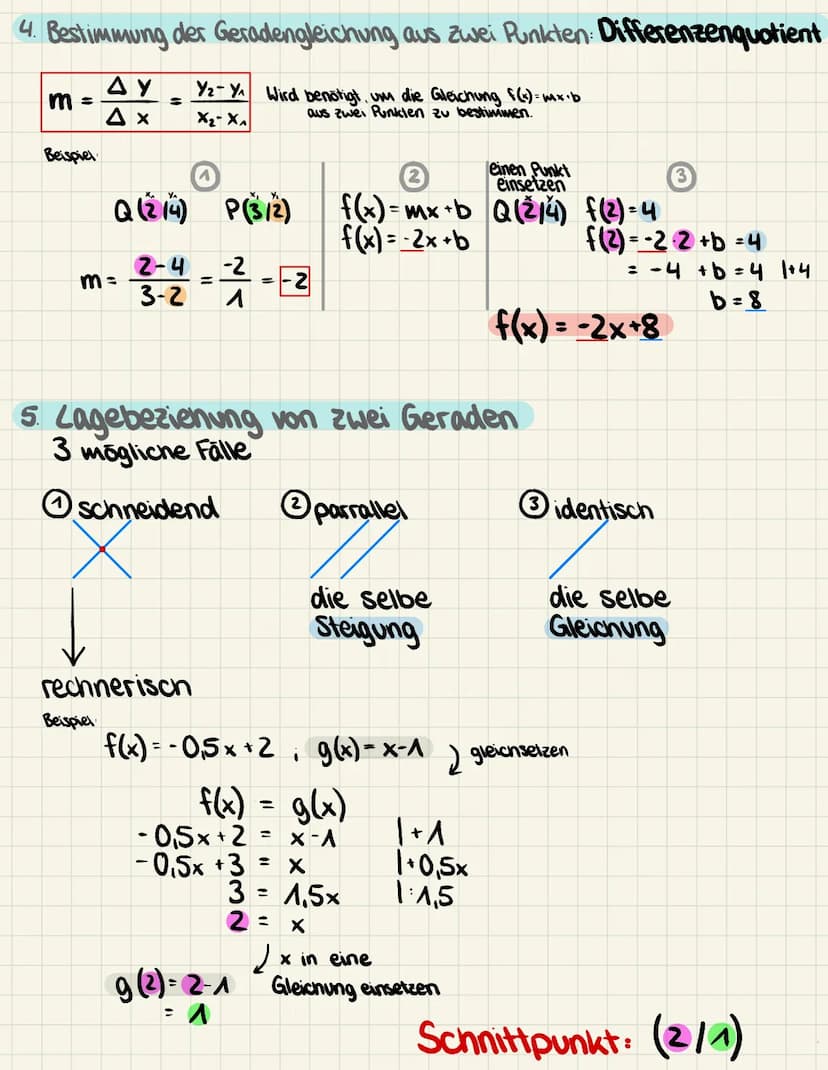 4. Bestimmung der Geradengleichung aus zwei Punkten: Differenzenquotient
m = Δy / Δx = y₂-y₁ / x₂-x₁
Wird benötigt, um die Gleichung f(x)=mx+b
aus zwei Punkten zu bestimmen.
Beispiel:
①
x₂ y₂ x₁ y₁
Q(2|4) P(3|2)
m = 2-4 / 3-2 = -2 / 1 = -2
②
f(x) = mx+b
f(x) = -2x+b
einen Punkt
einsetzen
③
x y
Q(2|4) f(2)=4
f(2) = -2·2 +b =4
= -4 +b = 4 |+4
b = 8
f(x) = -2x+8
5. Lagebeziehung von zwei Geraden
3 mögliche Fälle
① schneidend ② parrallel ③ identisch
die selbe
Steigung
die selbe
Gleichung
rechnerisch
Beispiel:
f(x) = -0,5x+2 ; g(x) = x-1 gleichsetzen
f(x) = g(x)
-0,5x+2 = x-1 |+1
-0,5x+3 = x |+0,5x
3 = 1,5x |:1,5
2 = x
x in eine
Gleichung einsetzen
g(2) = 2-1
= 1
Schnittpunkt: (2/1)